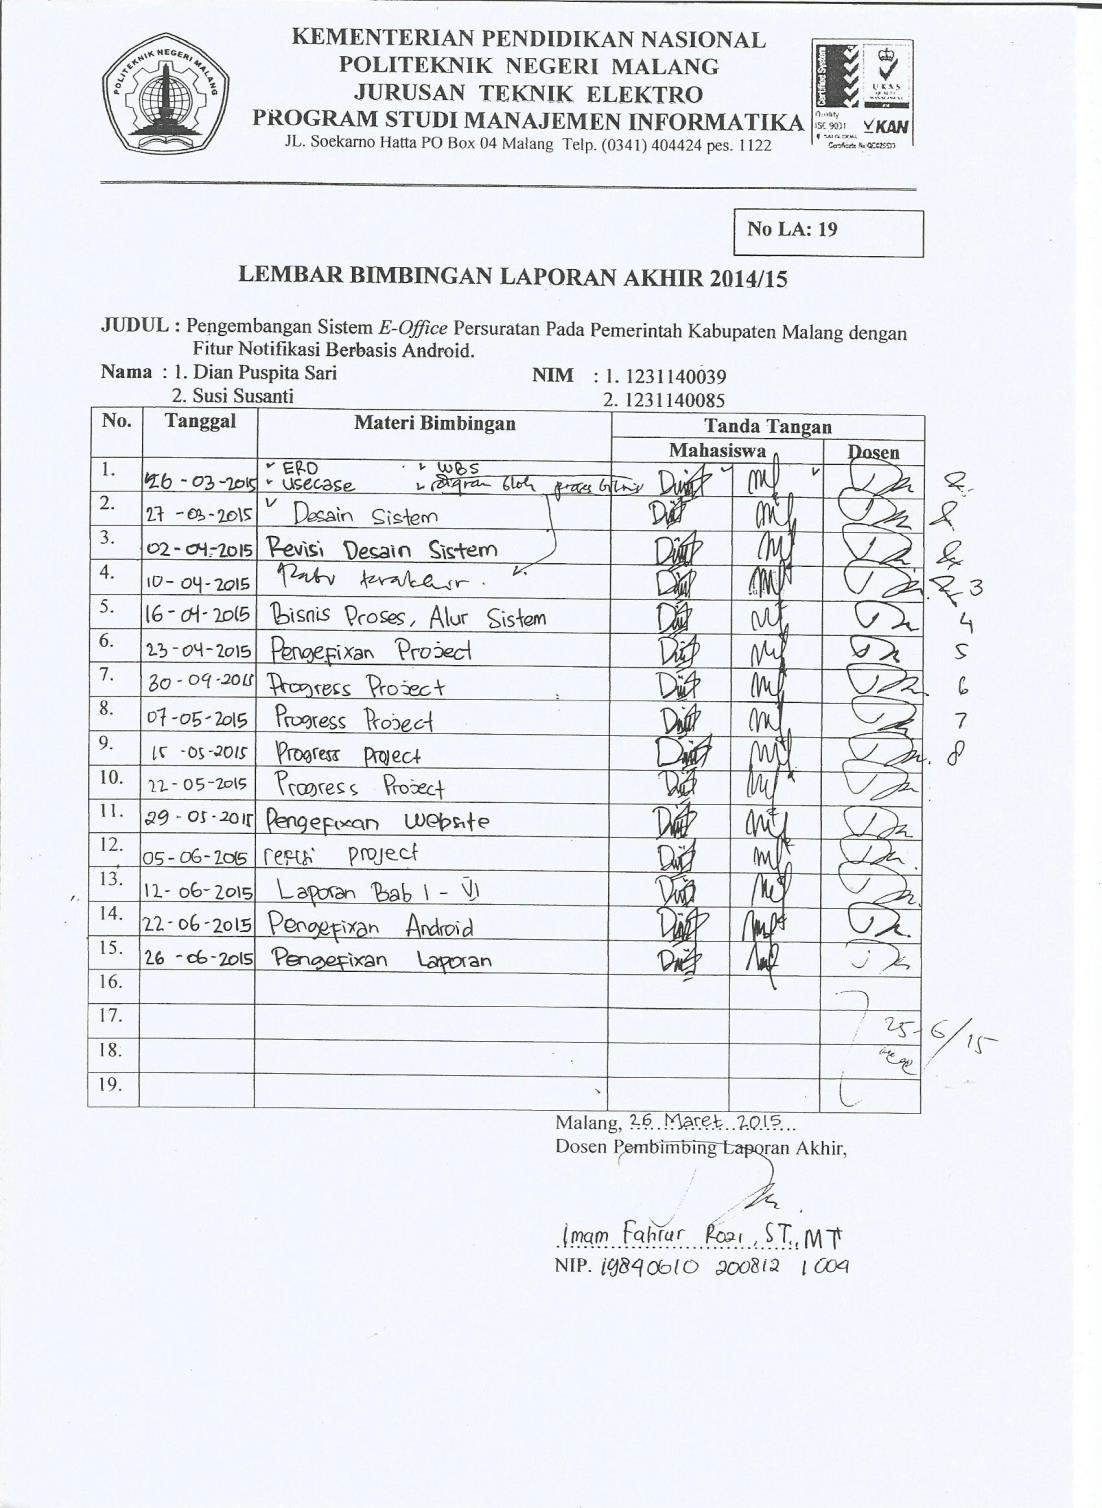 POLITEKNIK NEGERI MALANG
KEMENTERIAN PENDIDIKAN NASIONAL
POLITEKNIK NEGERI MALANG
JURUSAN TEKNIK ELEKTRO
PROGRAM STUDI MANAJEMEN INFORMATIKA
JL. Soekarno Hatta PO Box 04 Malang Telp. (0341) 404424 pes. 1122
UKAS
Quality
ISC 9001 KAN
No LA: 19
LEMBAR BIMBINGAN LAPORAN AKHIR 2014/15
JUDUL : Pengembangan Sistem E-Office Persuratan Pada Pemerintah Kabupaten Malang dengan
Fitur Notifikasi Berbasis Android.
Nama : 1. Dian Puspita Sari NIM : 1. 1231140039
2. Susi Susanti 2. 1231140085
No. Tanggal Materi Bimbingan Tanda Tangan
Mahasiswa Dosen
1. 26-03-2015 ERD WBS
usecase
2. 27-03-2015 Desain Sistem
3. 02-04-2015 Revisi Desain Sistem
4. 10-04-2015 3
5. 16-04-2015 Bisnis Proses, Alur Sistem 4
6. 23-04-2015 Pengefixan Project 5
7. 30-04-2015 Progress Project 6
8. 07-05-2015 Progress Project 7
9. 15-05-2015 Progress Project 8
10. 22-05-2015 Progress Project
11. 29-05-2015 Pengefixan Website
12. 05-06-2015 project
13. 12-06-2015 Laporan Bab I - VI
14. 22-06-2015 Pengefixan Android
15. 26-06-2015 Pengefixan Laporan
16.
17. 25-6/15
18.
19.
Malang, 26 Maret 2015
Dosen Pembimbing Laporan Akhir,
Imam Fahrur Rozi, ST., MT
NIP. 19840610 200812 1 004